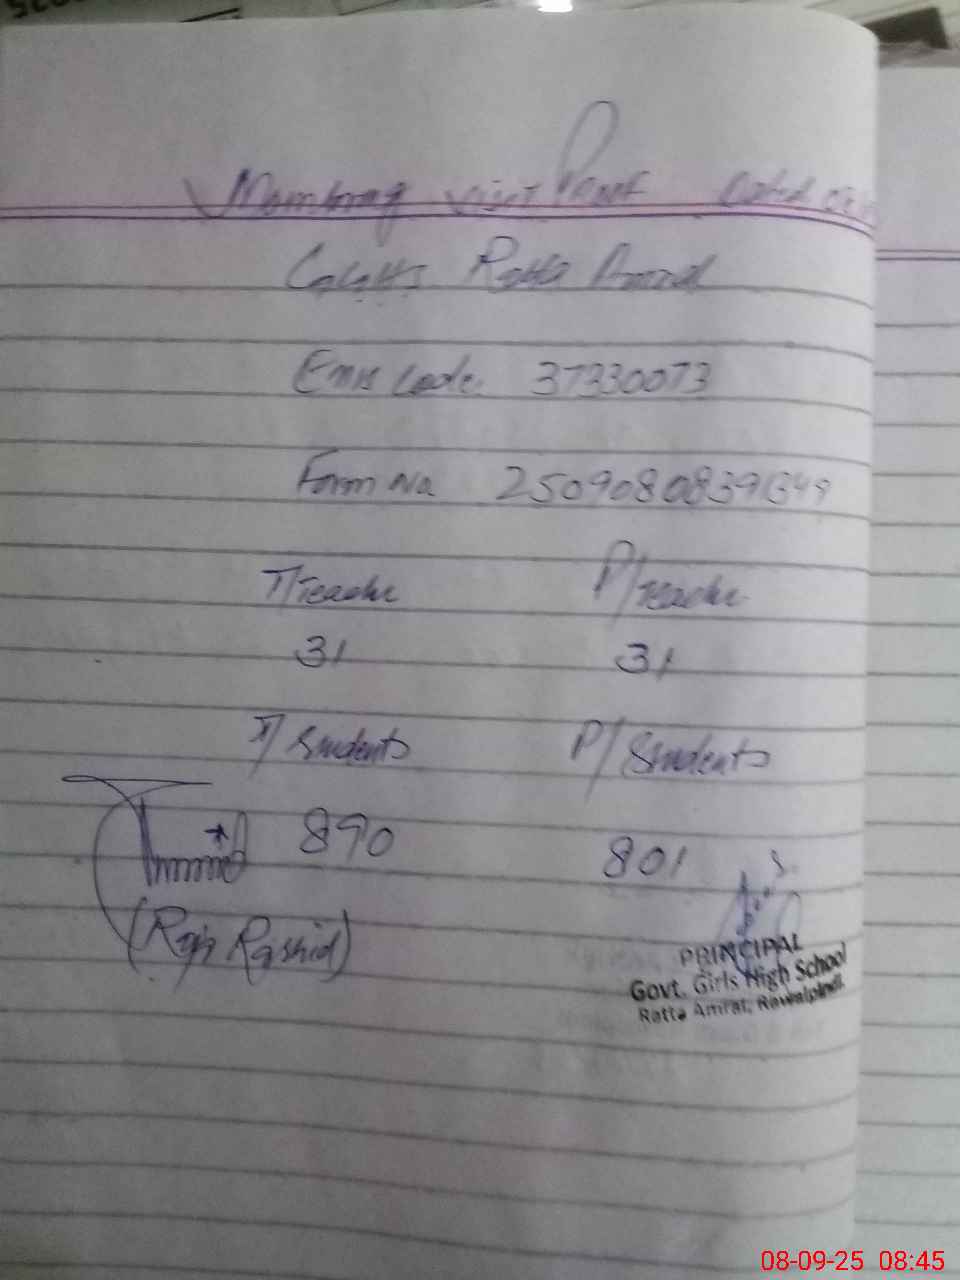 Monitoring visit Proof Dated
GGHS Ratta Amral
Emis Code. 37330073
Form No 2509080839349
T/Teacher P/Teacher
31 31
T/Students P/Students
890 801
(Raja Rashid)
PRINCIPAL
Govt. Girls High School
Ratta Amral, Rawalpindi.
08-09-25 08:45